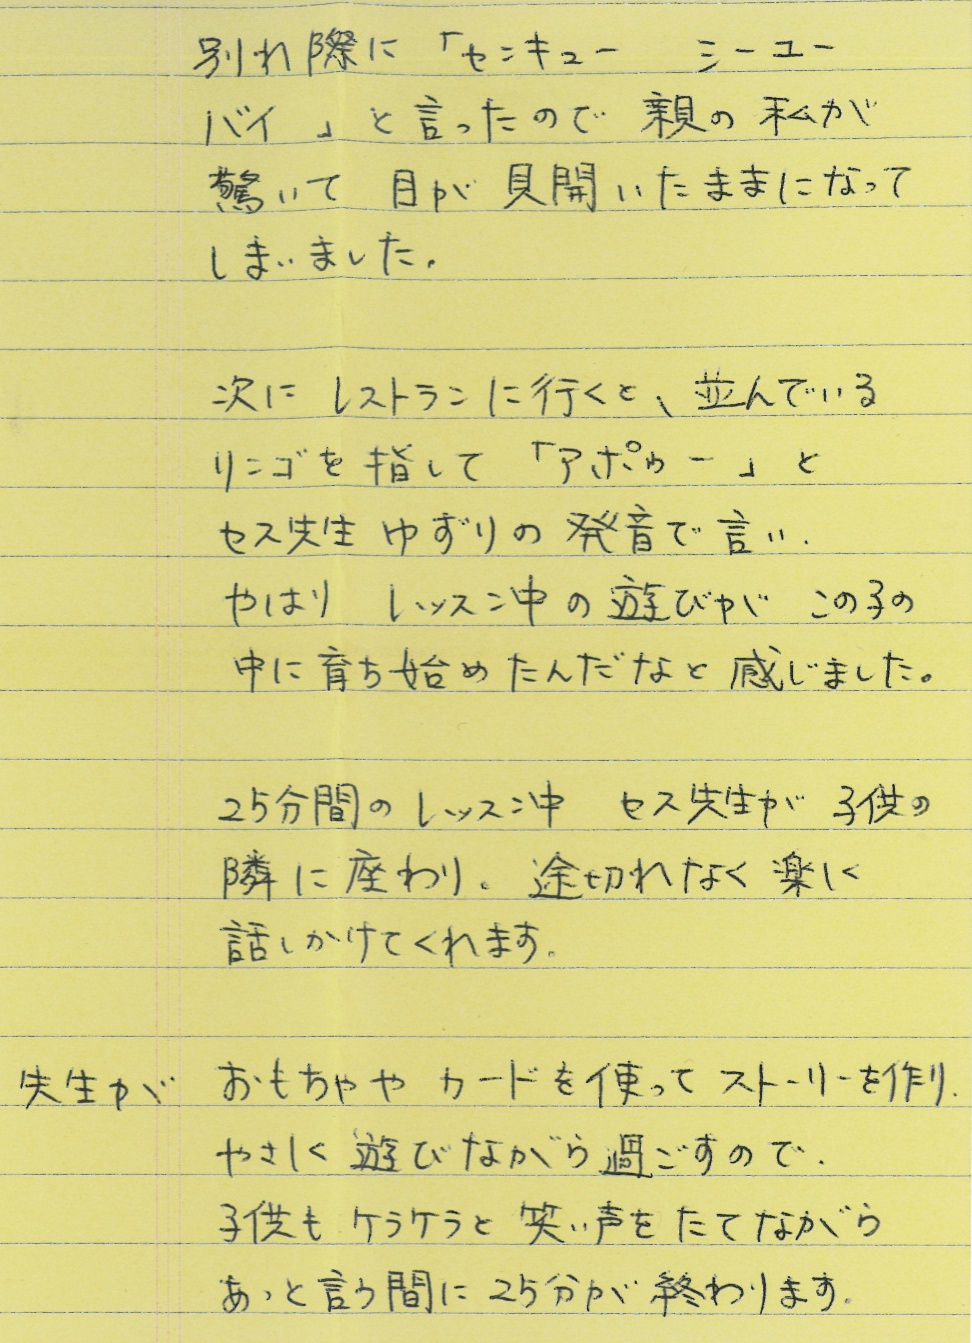 別れ際に「センキュー　シーユー
バイ」と言ったので 親の 私が
驚いて 目が 見開いたままになって
しまいました。
次に レストランに行くと、並んでいる
リンゴを 指して 「アポゥー」と
セス先生 ゆずりの 発音で 言い、
やはり レッスン中の 遊びが この子の
中に 育ち始めたんだなと 感じました。
25分間の レッスン中 セス先生が 子供の
隣に 座わり、途切れなく 楽しく
話しかけてくれます。
先生が おもちゃや カードを使って ストーリーを作り、
やさしく 遊びながら 過ごすので、
子供も ケラケラと 笑い声を たてながら
あっと言う間に 25分が 終わります。